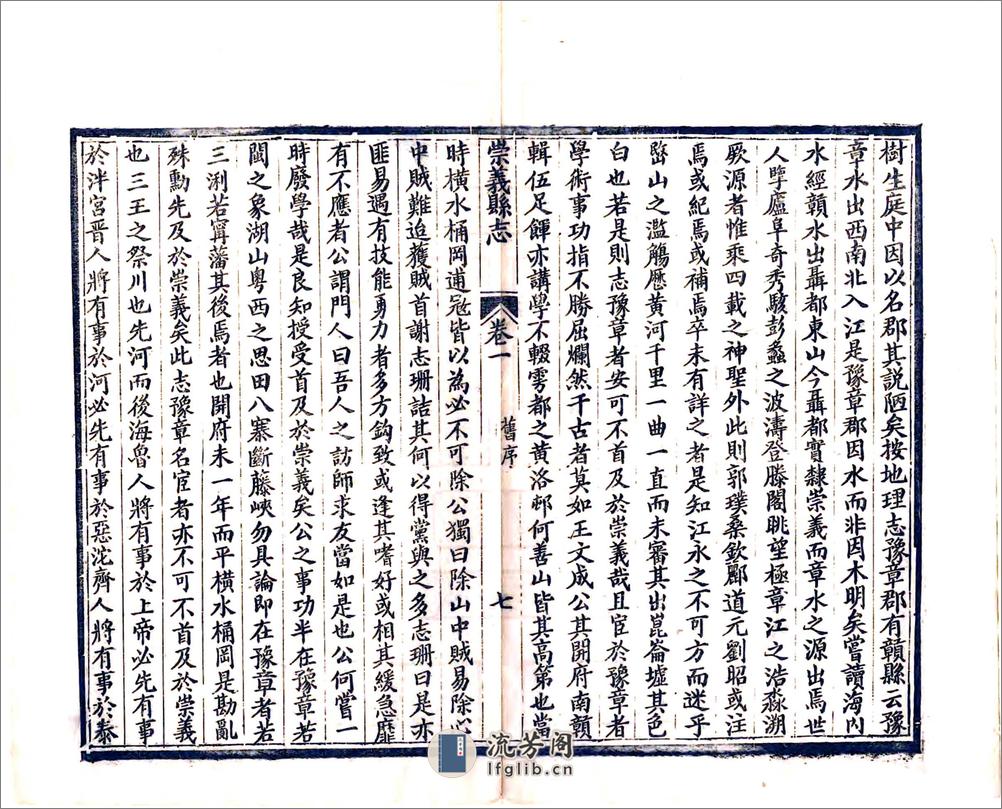 樹生庭中因以名郡其説陋矣按地理志豫章郡有贛縣云豫
章水出西南北入江是豫章郡因水而非因木明矣嘗讀海內
水經贛水出聶都東山今聶都實隸崇義而章水之源出焉世
人擥廬阜奇秀駭彭蠡之波濤登滕閣眺望極章江之浩淼溯
厥源者惟乘四載之神聖外此則郭璞桑欽酈道元劉昭或注
焉或紀焉或補焉卒未有詳之者是知江永之不可方而迷乎
㟭山之濫觴歷黃河千里一曲一直而未審其出崑崙墟其色
白也若是則志豫章者安可不首及於崇義哉且宦於豫章者
學術事功指不勝屈爛然千古者莫如王文成公其開府南贛
輯伍足餫亦講學不輟雩都之黃洛邨何善山皆其高第也當
崇義縣志 卷一 舊序 七
時橫水桶岡逋寇皆以為必不可除公獨曰除山中賊易除心
中賊難迨獲賊首謝志珊詰其何以得黨與之多志珊曰是亦
匪易遇有技能勇力者多方鈎致或逢其嗜好或相其緩急靡
有不應者公謂門人曰吾人之訪師求友當如是也公何嘗一
時廢學哉是良知授受首及於崇義矣公之事功半在豫章若
閩之象湖山粵西之思田八寨斷藤峽勿具論即在豫章者若
三浰若寗藩其後焉者也開府未一年而平橫水桶岡是勘亂
殊勳先及於崇義矣此志豫章名宦者亦不可不首及於崇義
也三王之祭川也先河而後海魯人將有事於上帝必先有事
於泮宮晋人將有事於河必先有事於惡沱齊人將有事於泰
流芳阁
lfglib.cn